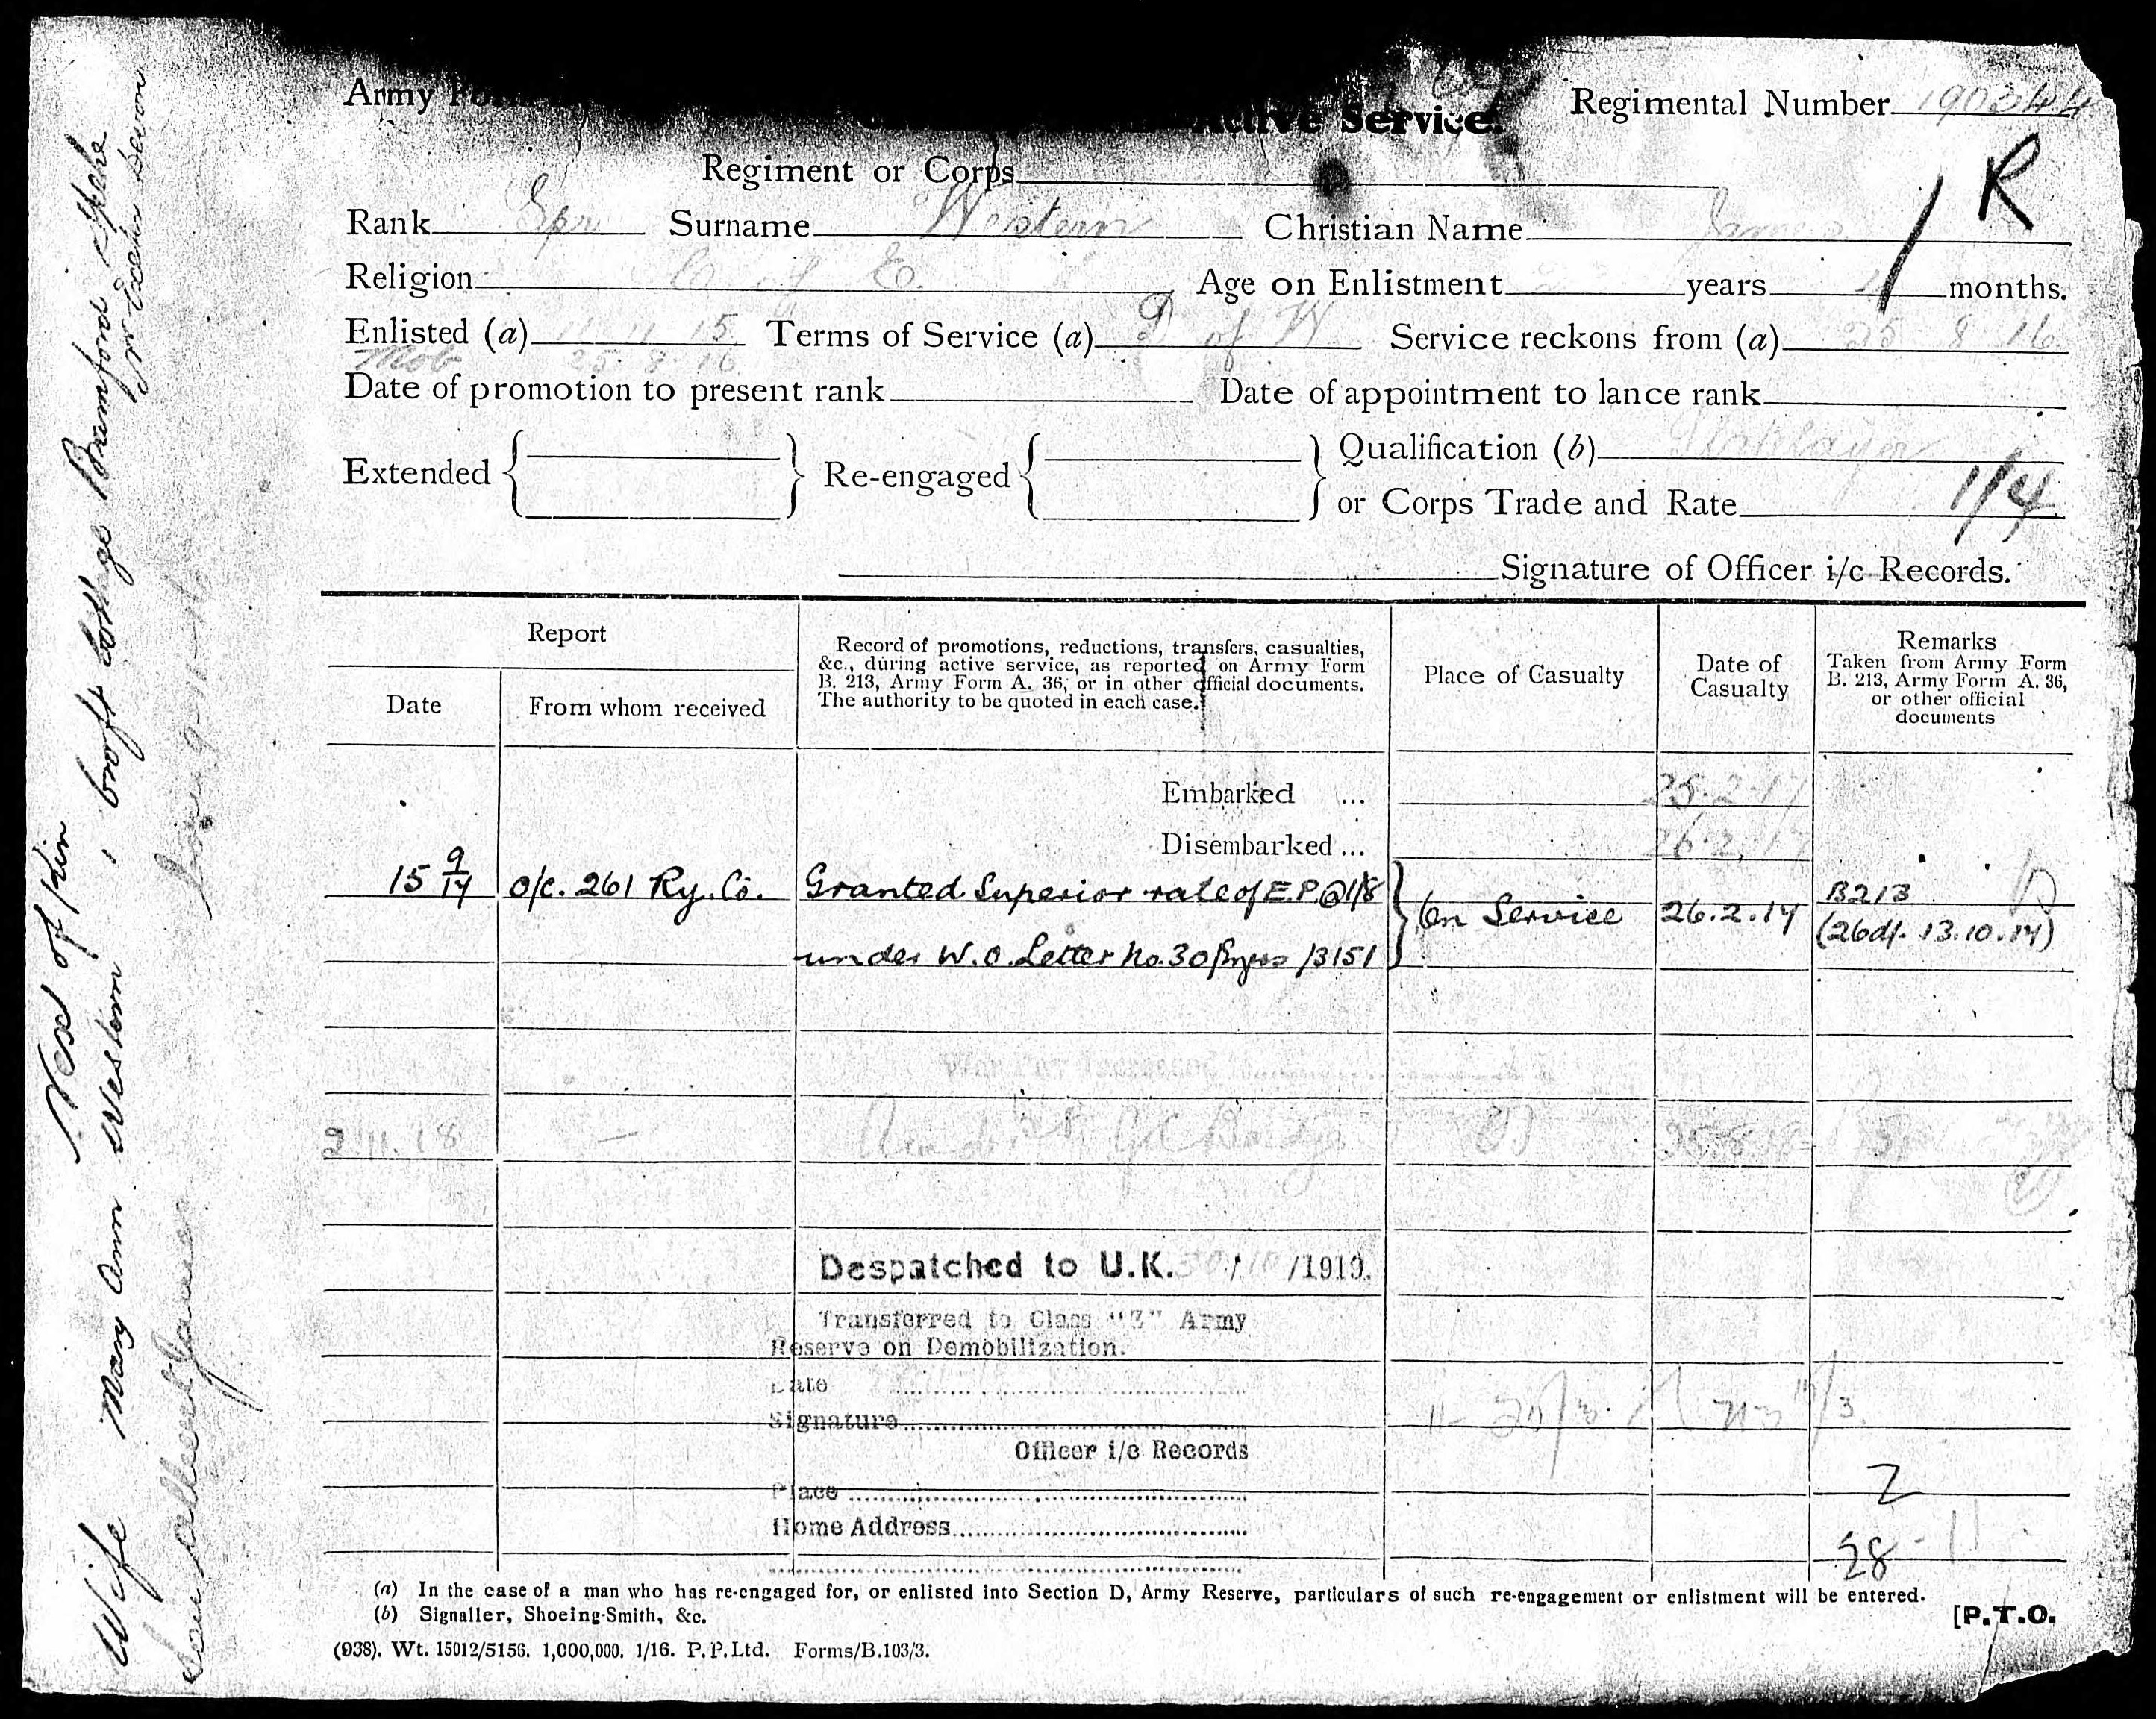 Army
Active Service.
Regimental Number 190344
R
Regiment or Corps
Rank Spr Surname Western Christian Name James
Religion C of E. Age on Enlistment years months.
Enlisted (a) 11 15 Terms of Service (a) D of W Service reckons from (a) 25 8 16
Mob 25 8 16
Date of promotion to present rank Date of appointment to lance rank
Extended Re-engaged Qualification (b) Platelayer
or Corps Trade and Rate 1/4
Signature of Officer i/c Records.
Report
Date
From whom received
Record of promotions, reductions, transfers, casualties,
&c., during active service, as reported on Army Form
B. 213, Army Form A. 36, or in other official documents.
The authority to be quoted in each case.
Place of Casualty
Date of
Casualty
Remarks
Taken from Army Form
B. 213, Army Form A. 36,
or other official
documents
Embarked ... 25.2.17
Disembarked ... 26.2.17
15 9/17 o/c. 261 Ry. Co. Granted Superior rate of E.P. @ 1/8 On Service 26.2.17 B213
under W.O. Letter No. 30 /3151 (26d/- 13.10.17)
11.18
Despatched to U.K. /10/1919.
Transferred to Class "Z" Army
Reserve on Demobilization.
Date
Signature
Officer i/c Records
Z
Place
Home Address
28-11
(a) In the case of a man who has re-engaged for, or enlisted into Section D, Army Reserve, particulars of such re-engagement or enlistment will be entered.
(b) Signaller, Shoeing-Smith, &c.
[P.T.O.
(938). Wt. 15012/5156. 1,000,000. 1/16. P.P.Ltd. Forms/B.103/3.
Next of Kin
Wife Mary Ann Western, Croft Cottage Bramford Speke
Nr Exeter Devon
James